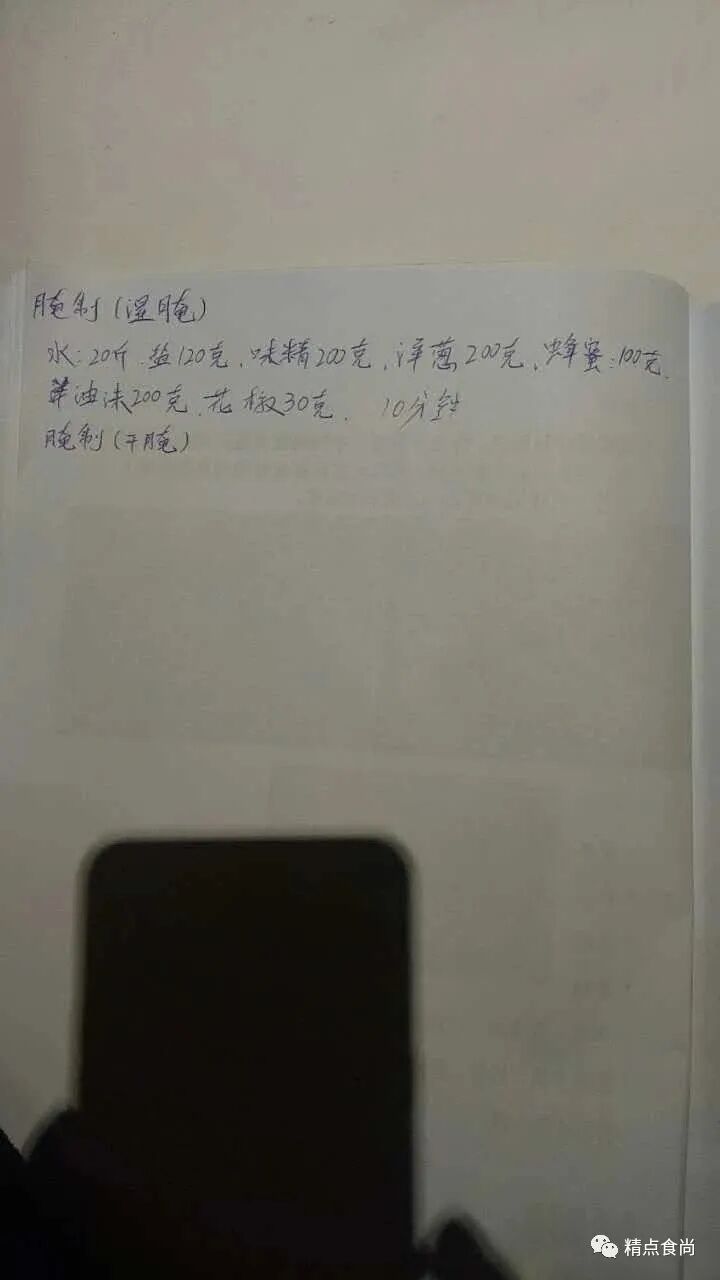 腌制(湿腌)
水:20斤.盐120克,味精200克,洋葱200克,蜂蜜:100克,
油沫200克,花椒30克, 10分钟
腌制(干腌)
精点食尚